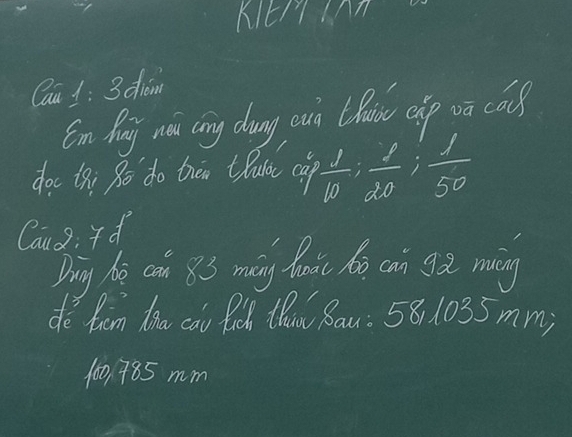 KIỂM TRA
Câu 1: 3 điểm
Em hãy nêu công dụng của thước cặp và cách
đọc thị số đo trên thước cặp 1/10; 1/20; 1/50
Câu 2: 7 đ
Dùng bộ căn 83 miếng hoặc bộ căn 92 miếng
để kiểm tra các kích thước sau: 58,1035 mm;
100,785 mm